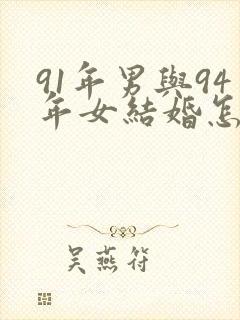 91年男與94
年女結婚怎
吴燕符